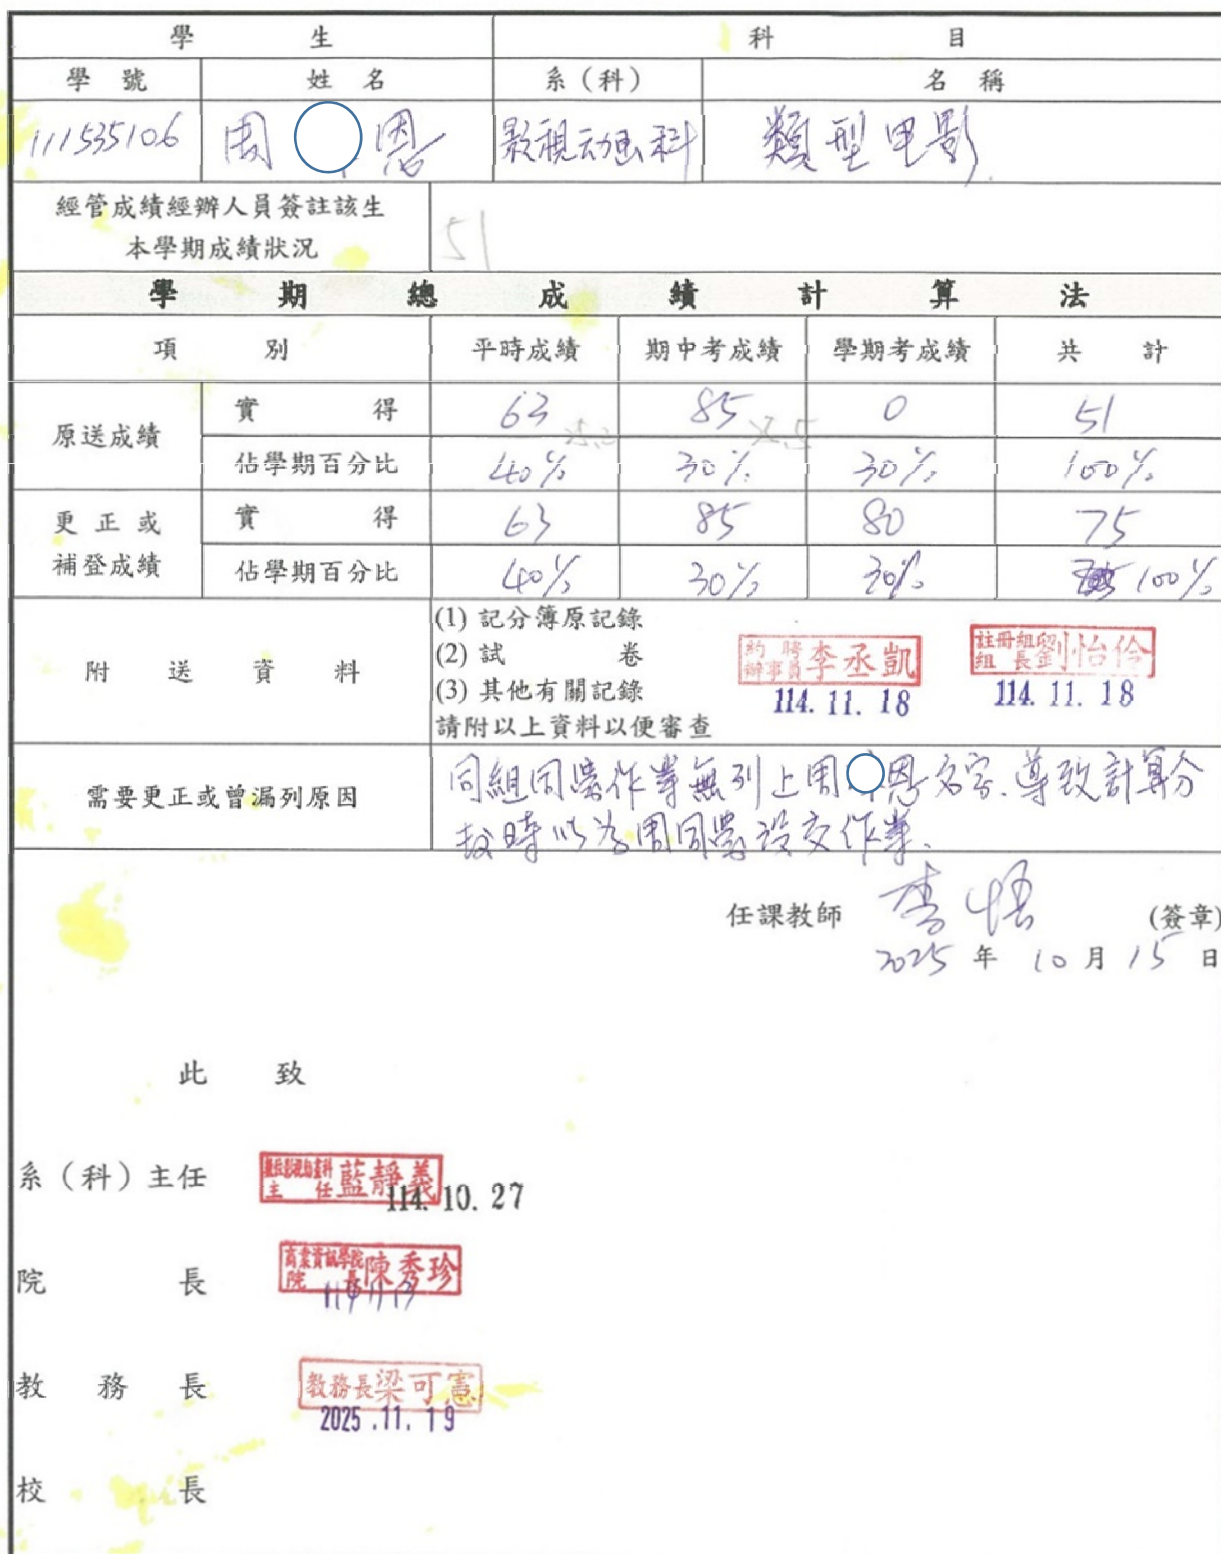 學 生 科 目
學 號 姓 名 系（科） 名 稱
111535106 周 恩 影視动画科 類型电影
經管成績經辦人員簽註該生
本學期成績狀況
51
學 期 總 成 績 計 算 法
項 別 平時成績 期中考成績 學期考成績 共 計
原送成績 實 得 63 85 0 51
佔學期百分比 40% 30% 30% 100%
更 正 或
補登成績
實 得 63 85 80 75
佔學期百分比 40% 30% 30% 100%
附 送 資 料
(1) 記分簿原記錄
(2) 試 卷
(3) 其他有關記錄
請附以上資料以便審查
約聘
辦事員 李丞凱
114. 11. 18
註冊組
組長 劉怡伶
114. 11. 18
需要更正或曾漏列原因
同組同學作業無列上周 恩名字.導致計算分
数時以為周同學没交作業.
任課教師 李 (簽章)
2025 年 10 月 15 日
此 致
系（科）主任
主 任 藍靜義
114. 10. 27
院 長
商業資訊學院
院 長 陳秀珍
教 務 長
教務長梁可憲
2025 .11. 19
校 長